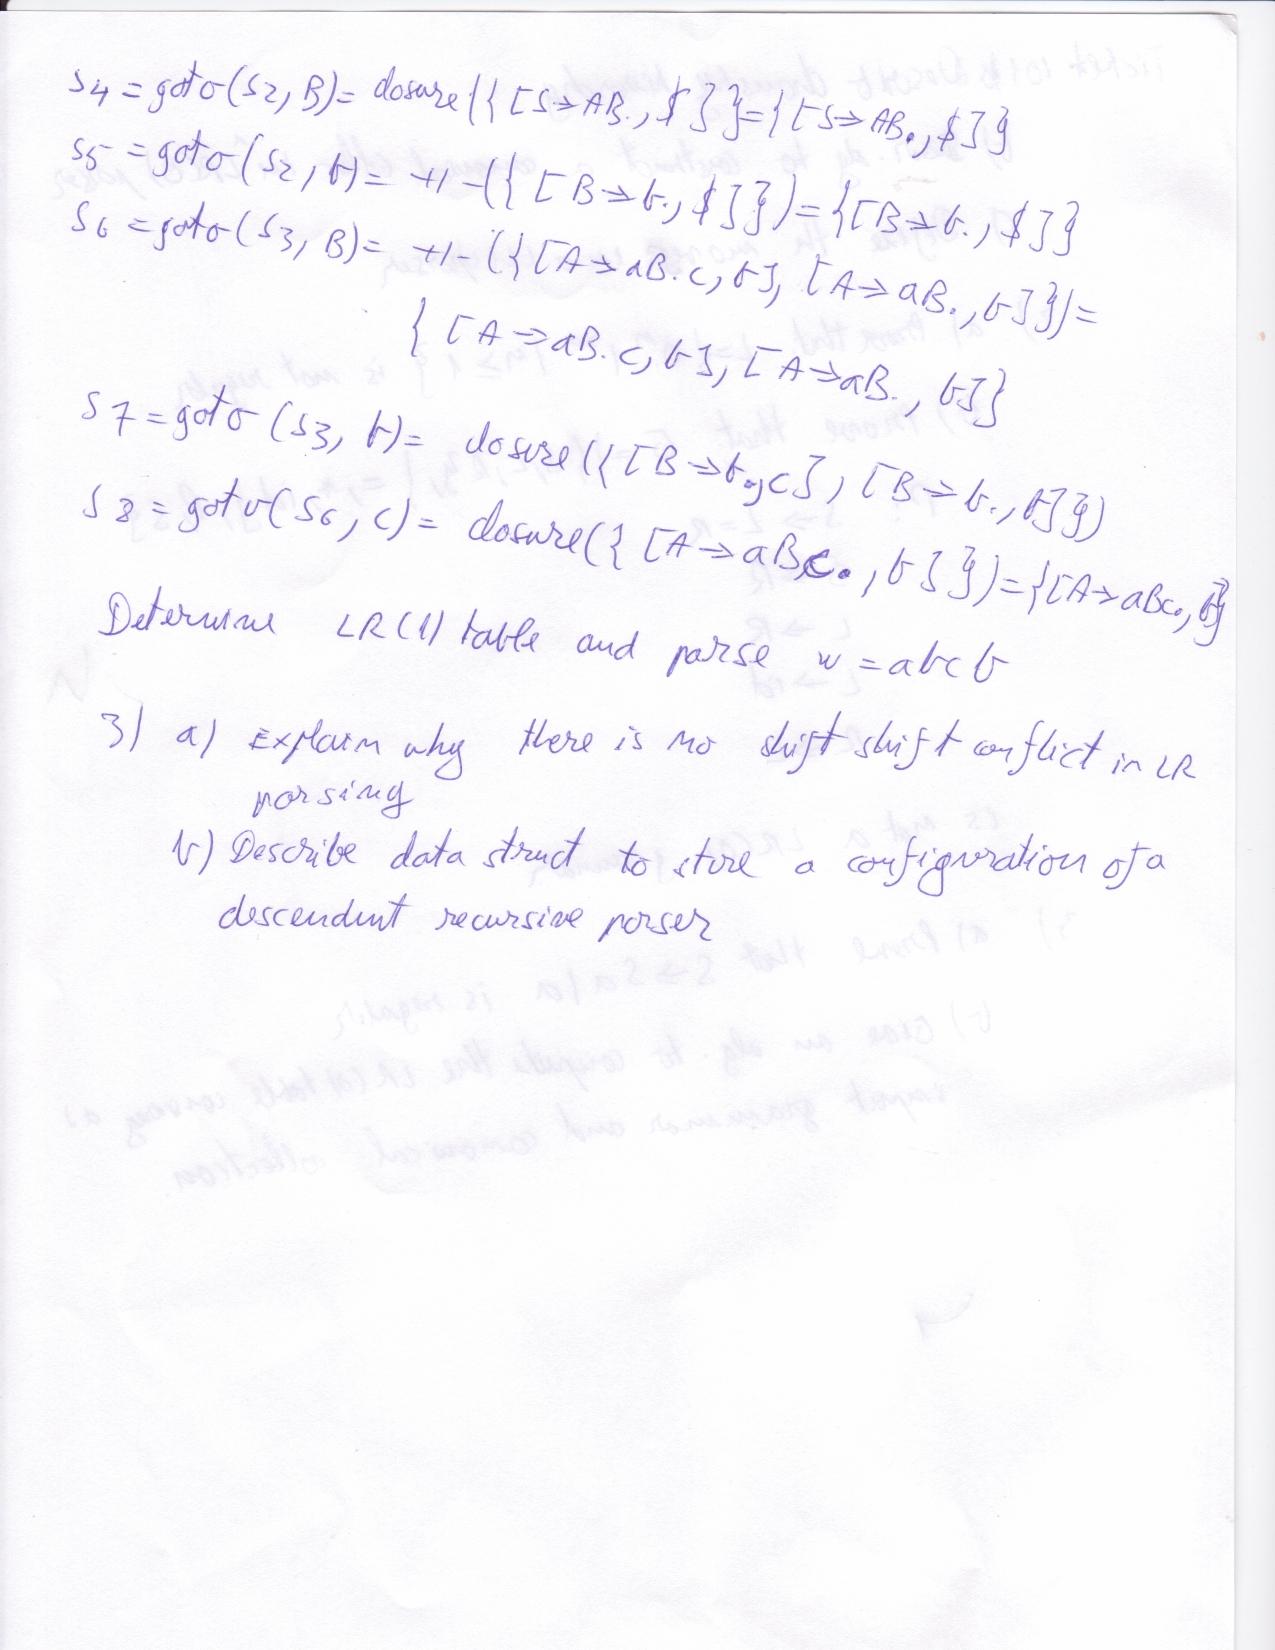 S4 = goto(S2, B) = closure({[S→AB., $]} = {[S→AB., $]}
S5 = goto(S2, b) = -11-({[B→b., $]}) = {[B→b., $]}
S6 = goto(S3, B) = -11-({[A→aB.c, b], [A→aB., b]}) =
{[A→aB.c, b], [A→aB., b]}
S7 = goto(S3, b) = closure({[B→b., c], [B→b., b]})
S8 = goto(S6, c) = closure({[A→aBc., b]}) = {[A→aBc., b]}
Determine LR(1) table and parse w = abcb
3) a) Explain why there is no shift shift conflict in LR
parsing
b) Describe data struct to store a configuration of a
descendent recursive parser